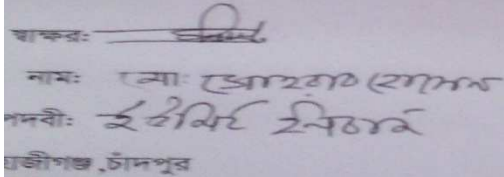 স্বাক্ষর:
নামঃ মোঃ সোহরাব হোসেন
পদবীঃ ইউনিট ইনচার্জ
হাজীগঞ্জ, চাঁদপুর